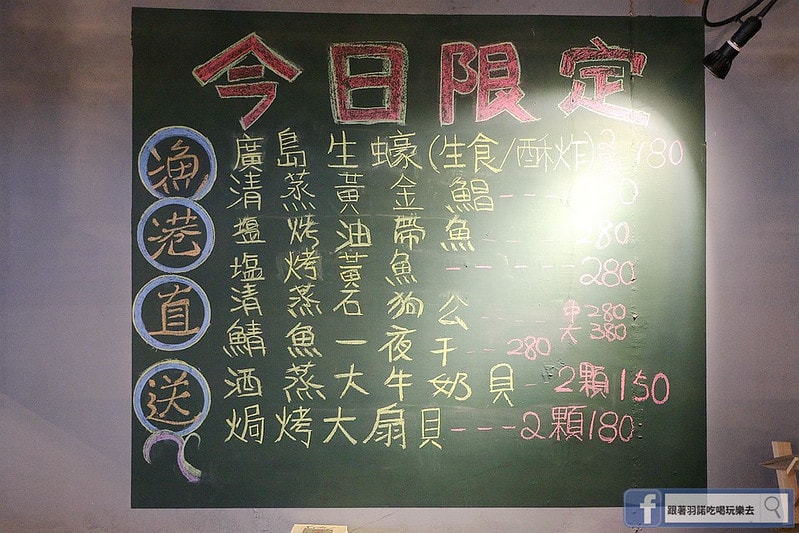 今日限定
漁港直送
廣島生蠔(生食/酥炸) 180
清蒸黃金鯧---
塩烤油帶魚---280
塩烤黃魚-----280
清蒸石狗公----中280
大380
鯖魚一夜干--280
酒蒸大牛奶貝-2顆150
焗烤大扇貝---2顆180
跟著羽諾吃喝玩樂去